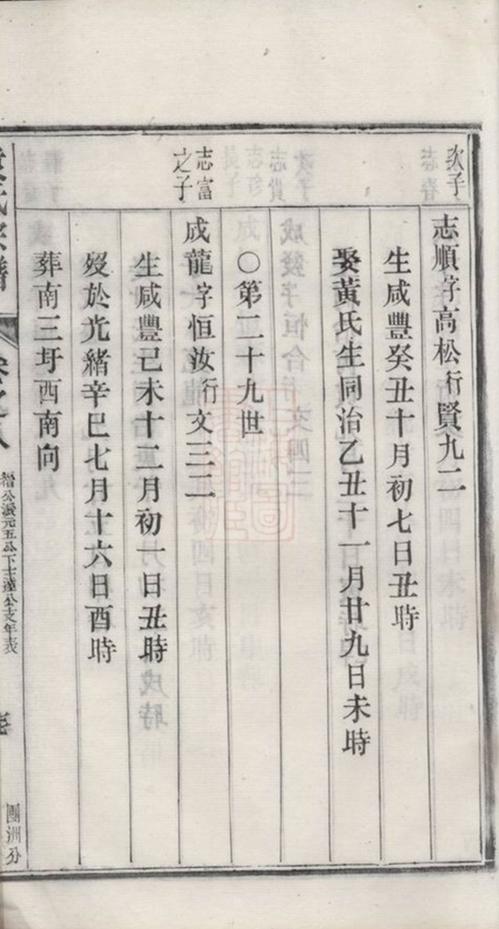 次子
志順字高松行賢九二
生咸豐癸丑十月初七日丑時
娶黃氏生同治乙丑十一月廿九日未時
〇第二十九世
志富之子
成龍字恒汝行文三二
生咸豐已未十二月初一日丑時
歿於光緒辛巳七月十六日酉時
葬南三圩西南向
氏宗譜
卷之八
公派元五公下士達公支年表
團洲分